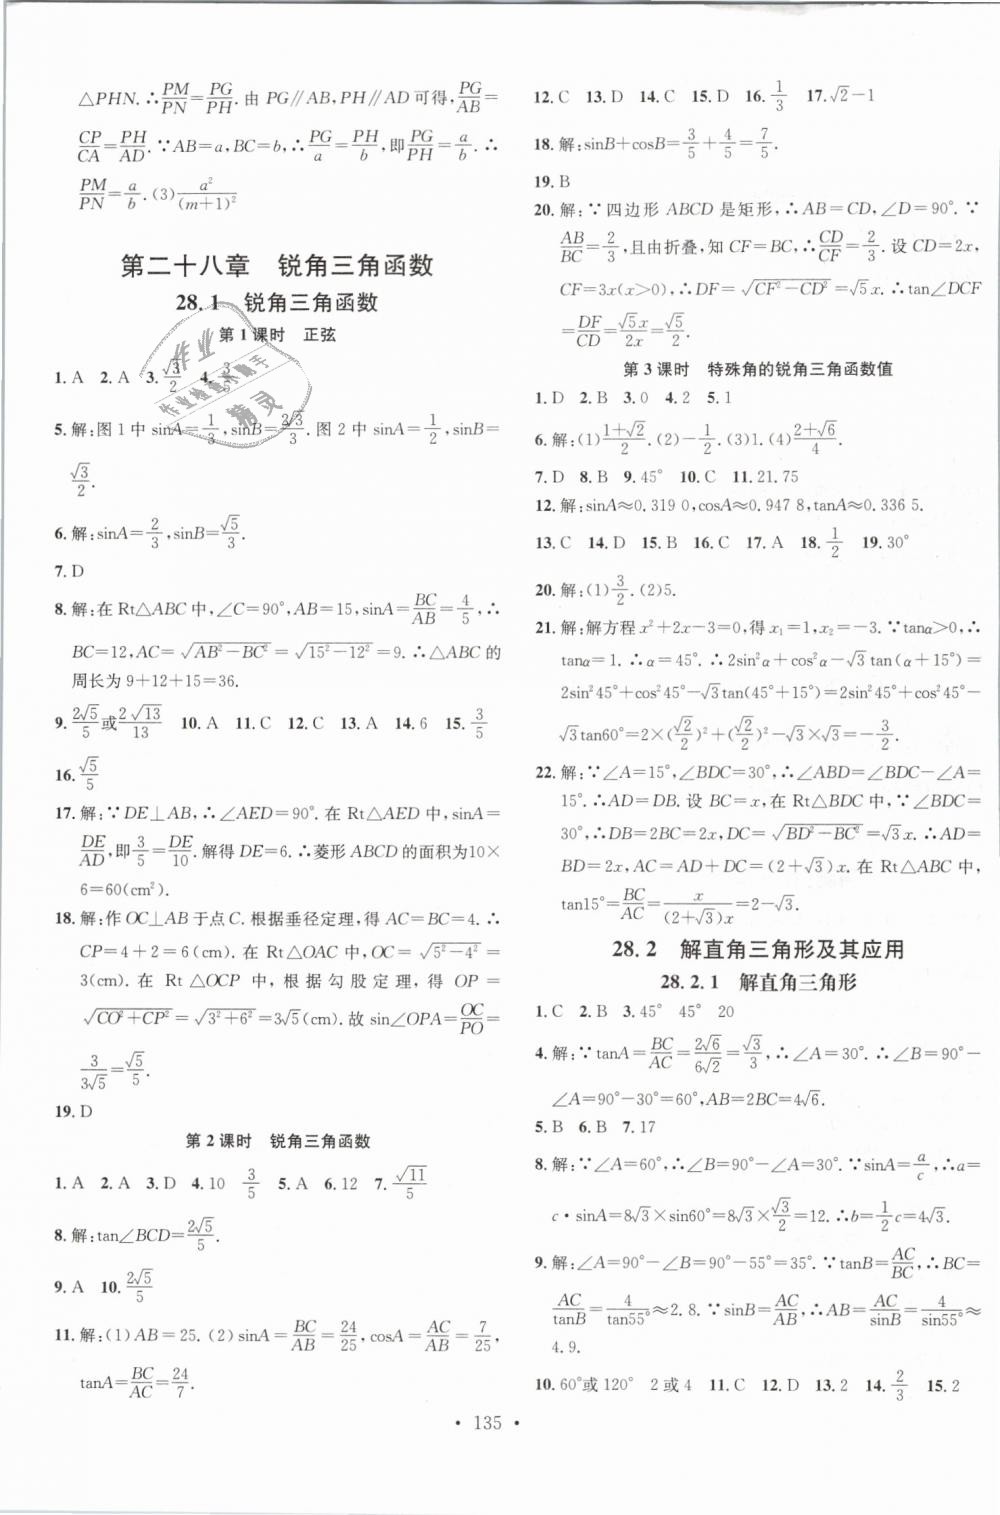 △PHN. ∴PM/PN=PG/PH. 由 PG∥AB, PH∥AD 可得, PG/AB=
CP/CA=PH/AD. ∵AB=a, BC=b, ∴PG/a=PH/b, 即PG/PH=a/b. ∴
PM/PN=a/b. (3)a²/(m+1)²
第二十八章 锐角三角函数
28.1 锐角三角函数
第1课时 正弦
1. A 2. A 3. √3/2 4. 3/5
5. 解:图1中 sinA=1/3, sinB=2√3/3. 图2中 sinA=1/2, sinB=
√3/2.
6. 解:sinA=2/3, sinB=√5/3.
7. D
8. 解:在 Rt△ABC 中,∠C=90°, AB=15, sinA=BC/AB=4/5, ∴
BC=12, AC=√(AB²-BC²)=√(15²-12²)=9. ∴△ABC 的
周长为 9+12+15=36.
9. 2√5/5或2√13/13 10. A 11. C 12. C 13. A 14. 6 15. 3/5
16. √5/5
17. 解:∵DE⊥AB, ∴∠AED=90°. 在 Rt△AED 中, sinA=
DE/AD, 即3/5=DE/10. 解得 DE=6. ∴菱形 ABCD 的面积为10×
6=60(cm²).
18. 解:作 OC⊥AB 于点 C. 根据垂径定理,得 AC=BC=4. ∴
CP=4+2=6(cm). 在 Rt△OAC 中, OC=√(5²-4²)=
3(cm). 在 Rt△OCP 中, 根据勾股定理, 得 OP=
√(CO²+CP²)=√(3²+6²)=3√5(cm). 故 sin∠OPA=OC/PO=
3/3√5=√5/5.
19. D
第2课时 锐角三角函数
1. A 2. A 3. D 4. 10 3/5 5. A 6. 12 7. √11/5
8. 解:tan∠BCD=2√5/5.
9. A 10. 2√5/5
11. 解:(1)AB=25. (2)sinA=BC/AB=24/25, cosA=AC/AB=7/25,
tanA=BC/AC=24/7.
12. C 13. D 14. C 15. D 16. 1/3 17. √2-1
18. 解:sinB+cosB=3/5+4/5=7/5.
19. B
20. 解:∵四边形 ABCD 是矩形, ∴AB=CD, ∠D=90°. ∵
AB/BC=2/3, 且由折叠,知 CF=BC, ∴CD/CF=2/3. 设 CD=2x,
CF=3x(x>0), ∴DF=√(CF²-CD²)=√5x. ∴tan∠DCF
=DF/CD=√5x/2x=√5/2.
第3课时 特殊角的锐角三角函数值
1. D 2. B 3. 0 4. 2 5. 1
6. 解:(1)(1+√2)/2. (2)-1/2. (3)1. (4)(2+√6)/4.
7. D 8. B 9. 45° 10. C 11. 21.75
12. 解:sinA≈0.319 0, cosA≈0.947 8, tanA≈0.336 5.
13. C 14. D 15. B 16. C 17. A 18. 1/2 19. 30°
20. 解:(1)3/2. (2)5.
21. 解:解方程 x²+2x-3=0, 得 x₁=1, x₂=-3. ∵tanα>0, ∴
tanα=1. ∴α=45°. ∴2sin²α+cos²α-√3tan(α+15°)=
2sin²45°+cos²45°-√3tan(45°+15°)=2sin²45°+cos²45°-
√3tan60°=2×(√2/2)²+(√2/2)²-√3×√3=-3/2.
22. 解:∵∠A=15°, ∠BDC=30°, ∴∠ABD=∠BDC-∠A=
15°. ∴AD=DB. 设 BC=x, 在 Rt△BDC 中, ∵∠BDC=
30°, ∴DB=2BC=2x, DC=√(BD²-BC²)=√3x. ∴AD=
BD=2x, AC=AD+DC=(2+√3)x. 在 Rt△ABC 中,
tan15°=BC/AC=x/(2+√3)x=2-√3.
28.2 解直角三角形及其应用
28.2.1 解直角三角形
1. C 2. B 3. 45° 45° 20
4. 解:∵tanA=BC/AC=2√6/6√2=√3/3, ∴∠A=30°. ∴∠B=90°-
∠A=90°-30°=60°, AB=2BC=4√6.
5. B 6. B 7. 17
8. 解:∵∠A=60°, ∴∠B=90°-∠A=30°. ∵sinA=a/c, ∴a=
c·sinA=8√3×sin60°=8√3×√3/2=12. ∴b=1/2c=4√3.
9. 解:∠A=90°-∠B=90°-55°=35°. ∵tanB=AC/BC, ∴BC=
AC/tanB=4/tan55°≈2.8. ∵sinB=AC/AB, ∴AB=AC/sinB=4/sin55°≈
4.9.
10. 60°或120° 2或4 11. C 12. D 13. 2 14. 2/3 15. 2
· 135 ·